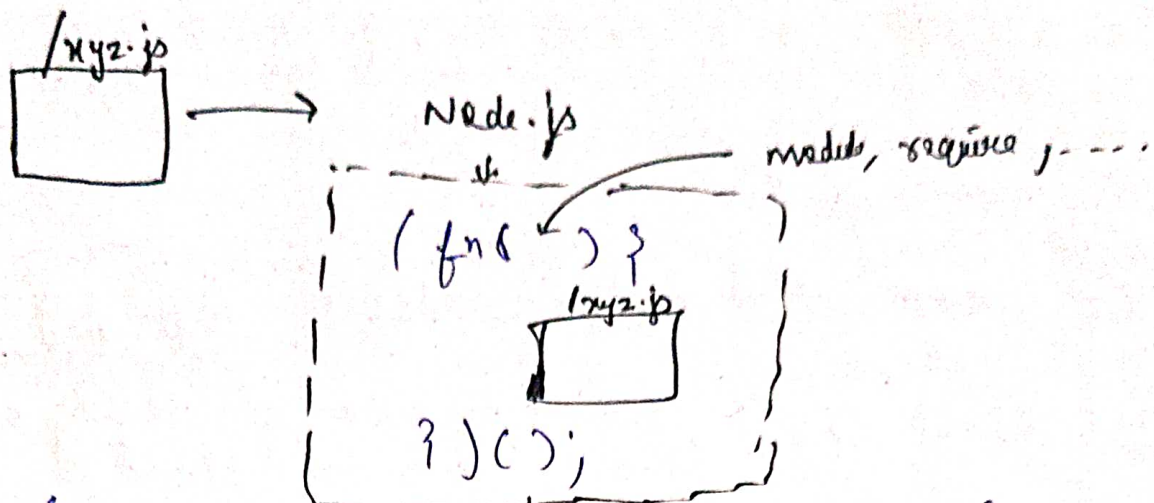 /xyz.js
Node.js
module, require, ----
( fn( ) {
/xyz.js
} ) ( ) ;